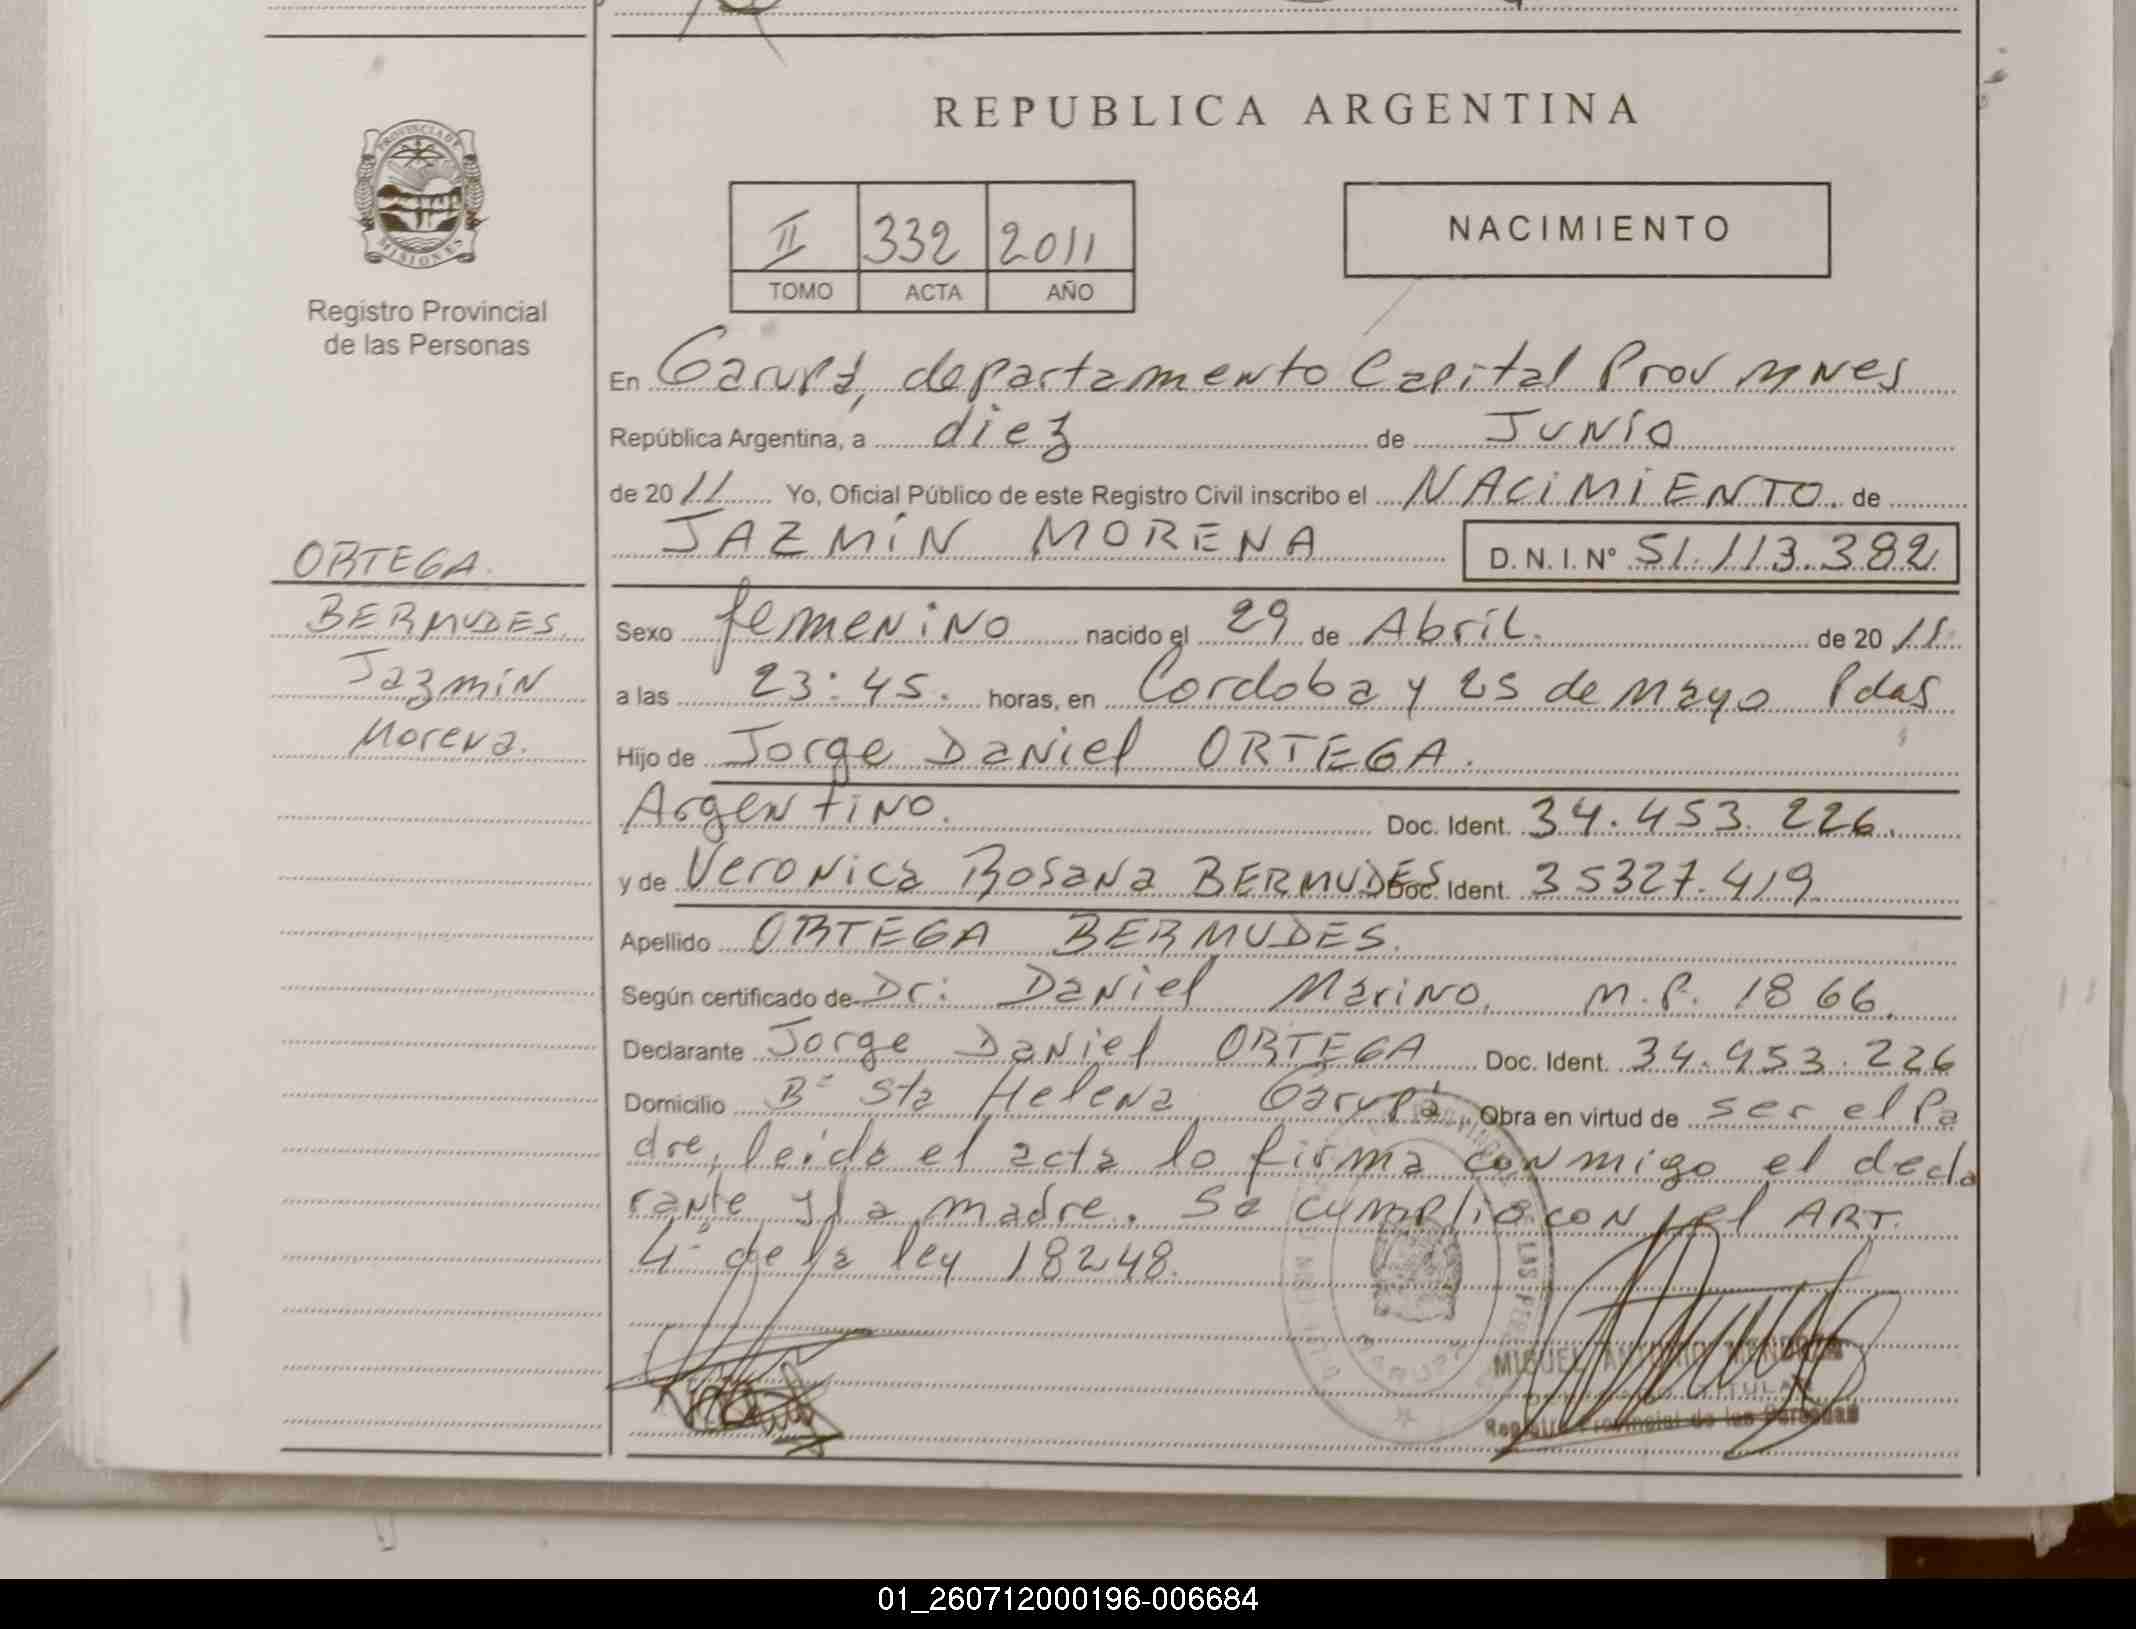 PROVINCIA DE
MISIONES
Registro Provincial
de las Personas
ORTEGA.
BERMUDES
Jazmin
Morena.
REPUBLICA ARGENTINA
II 332 2011
TOMO ACTA AÑO
NACIMIENTO
En Garupá, departamento Capital Prov MNes
República Argentina, a diez de Junio
de 2011 Yo, Oficial Público de este Registro Civil inscribo el NACIMIENTO de
JAZMIN MORENA D. N. I. Nº 51.113.382
Sexo femenino nacido el 29 de Abril. de 2011
a las 23:45. horas, en Cordoba y 25 de Mayo Pdas
Hijo de Jorge Daniel ORTEGA.
Argentino. Doc. Ident. 34.453.226.
y de Veronica Rosana BERMUDES Doc. Ident. 35327.419
Apellido ORTEGA BERMUDES.
Según certificado de Dr: Daniel Marino. M.P. 1866.
Declarante Jorge Daniel ORTEGA Doc. Ident. 34.453.226
Domicilio Bº Sta Helena Garupá Obra en virtud de ser el Pa
dre, leida el acta lo firma conmigo el decla
rante y la madre. Se cumplio con el ART.
4º de la ley 18248.
MIGUEL ANTONIO MENDOZA
TITULAR
Registro Provincial de las Personas
01_260712000196-006684